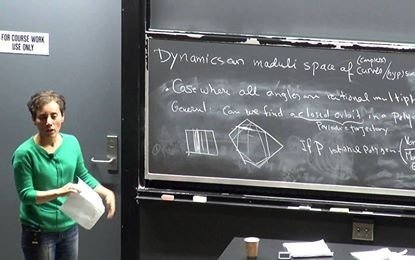 FOR COURSE WORK
USE ONLY
Dynamics on moduli space of (complex) curves/hyp
• Case where all angles are rational multip
General. Can we find a closed orbit in a Poly
Periodic trajectory
If P rational polygon